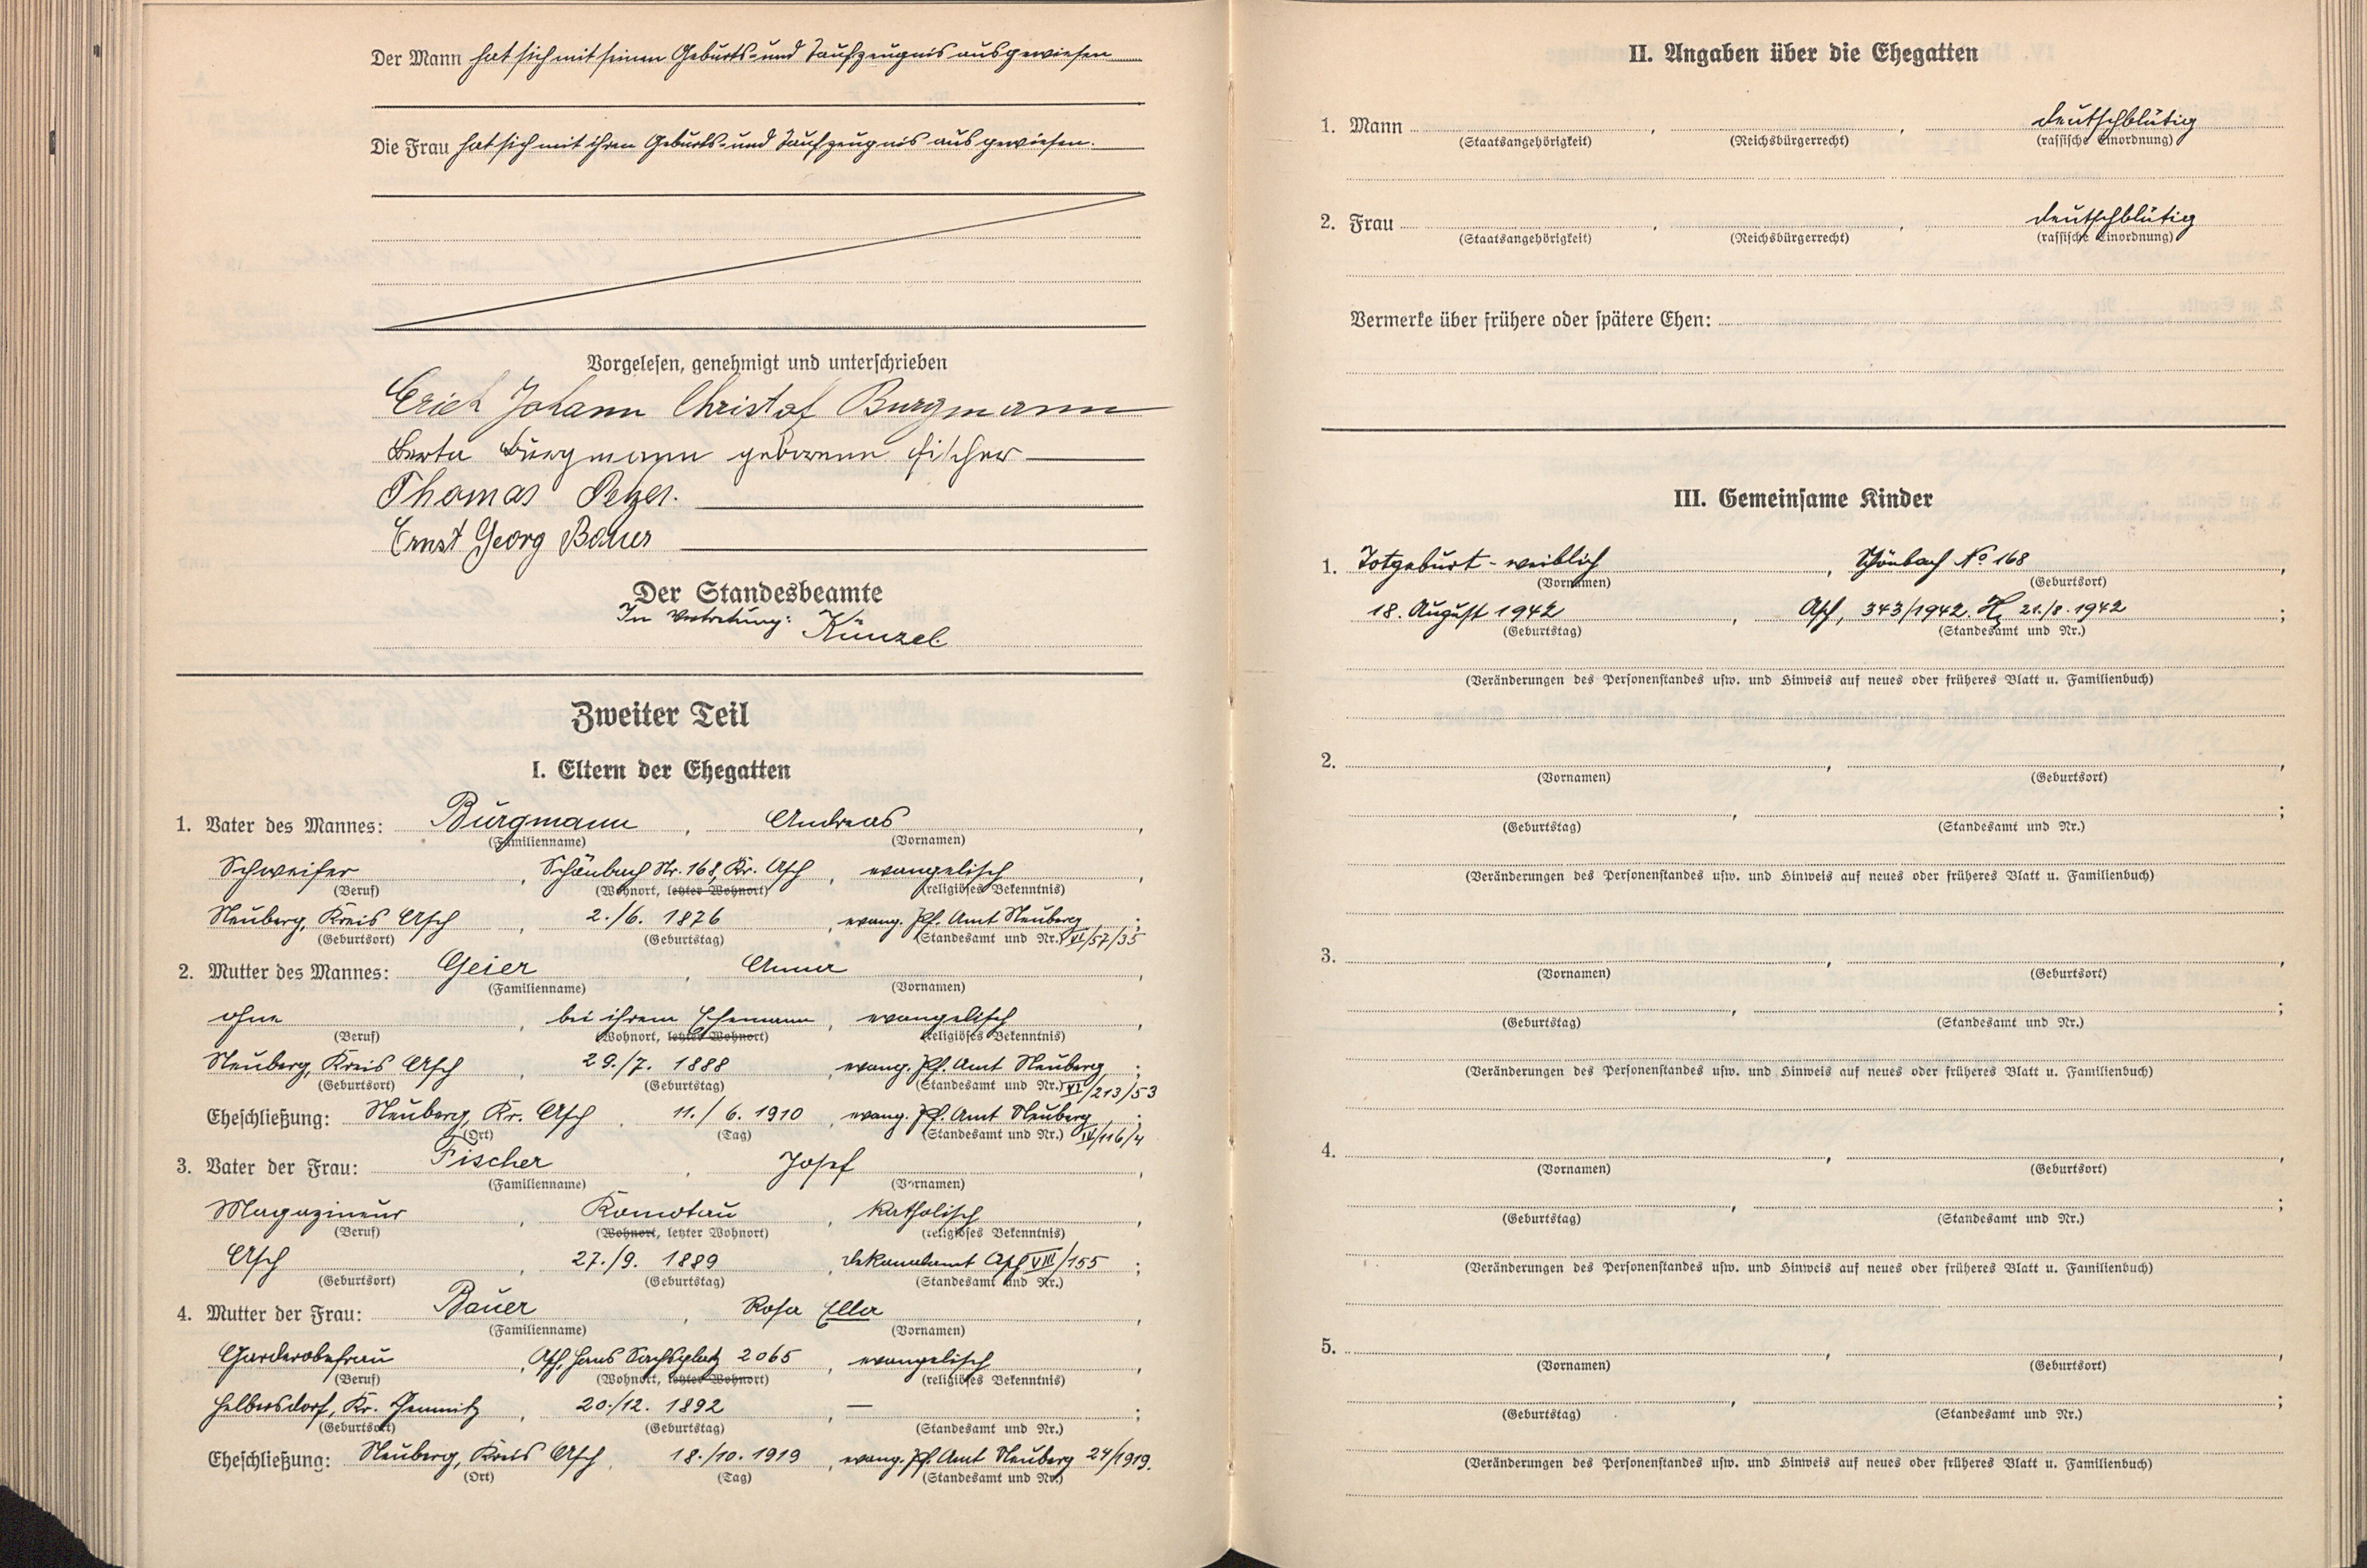 Der Mann hat sich mit seinem Geburts- und Taufzeugnis ausgewiesen
Die Frau hat sich mit ihrem Geburts- und Taufzeugnis ausgewiesen.
Vorgelesen, genehmigt und unterschrieben
Erich Johann Christof Burgmann
Berta Burgmann geborene Fischer
Thomas
Ernst Georg Bauer
Der Standesbeamte
In Vertretung: Künzel
Zweiter Teil
I. Eltern der Ehegatten
1. Vater des Mannes: Burgmann, Andreas,
(Familienname) (Vornamen)
Schweifer, Schönbach Nr. 168, Kr. Asch, evangelisch,
(Beruf) (Wohnort, letzter Wohnort) (religiöses Bekenntnis)
Neuberg, Kreis Asch, 2./6. 1876, evang. Pf. Amt Neuberg;
(Geburtsort) (Geburtstag) (Standesamt und Nr.) VI/57/35
2. Mutter des Mannes: Geier, Anna,
(Familienname) (Vornamen)
ohne, bei ihrem Ehemann, evangelisch,
(Beruf) (Wohnort, letzter Wohnort) (religiöses Bekenntnis)
Neuberg, Kreis Asch, 29./7. 1888, evang. Pf. Amt Neuberg;
(Geburtsort) (Geburtstag) (Standesamt und Nr.) VI/213/53
Eheschließung: Neuberg, Kr. Asch, 11./6. 1910, evang. Pf. Amt Neuberg;
(Ort) (Tag) (Standesamt und Nr.) IV/116/4
3. Vater der Frau: Fischer, Josef,
(Familienname) (Vornamen)
Magazineur, Komotau, katholisch,
(Beruf) (Wohnort, letzter Wohnort) (religiöses Bekenntnis)
Asch, 27./9. 1889, Dekanalamt Asch VIII/155;
(Geburtsort) (Geburtstag) (Standesamt und Nr.)
4. Mutter der Frau: Bauer, Rosa Ella,
(Familienname) (Vornamen)
Garderobefrau, Asch, Hans Sachsplatz 2065, evangelisch,
(Beruf) (Wohnort, letzter Wohnort) (religiöses Bekenntnis)
Helbersdorf, Kr. Chemnitz, 20./12. 1892, —;
(Geburtsort) (Geburtstag) (Standesamt und Nr.)
Eheschließung: Neuberg, Kreis Asch, 18./10. 1919, evang. Pf. Amt Neuberg 24/1919.
(Ort) (Tag) (Standesamt und Nr.)
II. Angaben über die Ehegatten
1. Mann , , deutschblütig
(Staatsangehörigkeit) (Reichsbürgerrecht) (rassische Einordnung)
2. Frau , , deutschblütig
(Staatsangehörigkeit) (Reichsbürgerrecht) (rassische Einordnung)
Vermerke über frühere oder spätere Ehen:
III. Gemeinsame Kinder
1. Totgeburt - weiblich, Schönbach No 168,
(Vornamen) (Geburtsort)
18. August 1942, Asch, 343/1942. 21./8. 1942;
(Geburtstag) (Standesamt und Nr.)
(Veränderungen des Personenstandes usw. und Hinweis auf neues oder früheres Blatt u. Familienbuch)
2. , ,
(Vornamen) (Geburtsort)
, ;
(Geburtstag) (Standesamt und Nr.)
(Veränderungen des Personenstandes usw. und Hinweis auf neues oder früheres Blatt u. Familienbuch)
3. , ,
(Vornamen) (Geburtsort)
, ;
(Geburtstag) (Standesamt und Nr.)
(Veränderungen des Personenstandes usw. und Hinweis auf neues oder früheres Blatt u. Familienbuch)
4. , ,
(Vornamen) (Geburtsort)
, ;
(Geburtstag) (Standesamt und Nr.)
(Veränderungen des Personenstandes usw. und Hinweis auf neues oder früheres Blatt u. Familienbuch)
5. , ,
(Vornamen) (Geburtsort)
, ;
(Geburtstag) (Standesamt und Nr.)
(Veränderungen des Personenstandes usw. und Hinweis auf neues oder früheres Blatt u. Familienbuch)